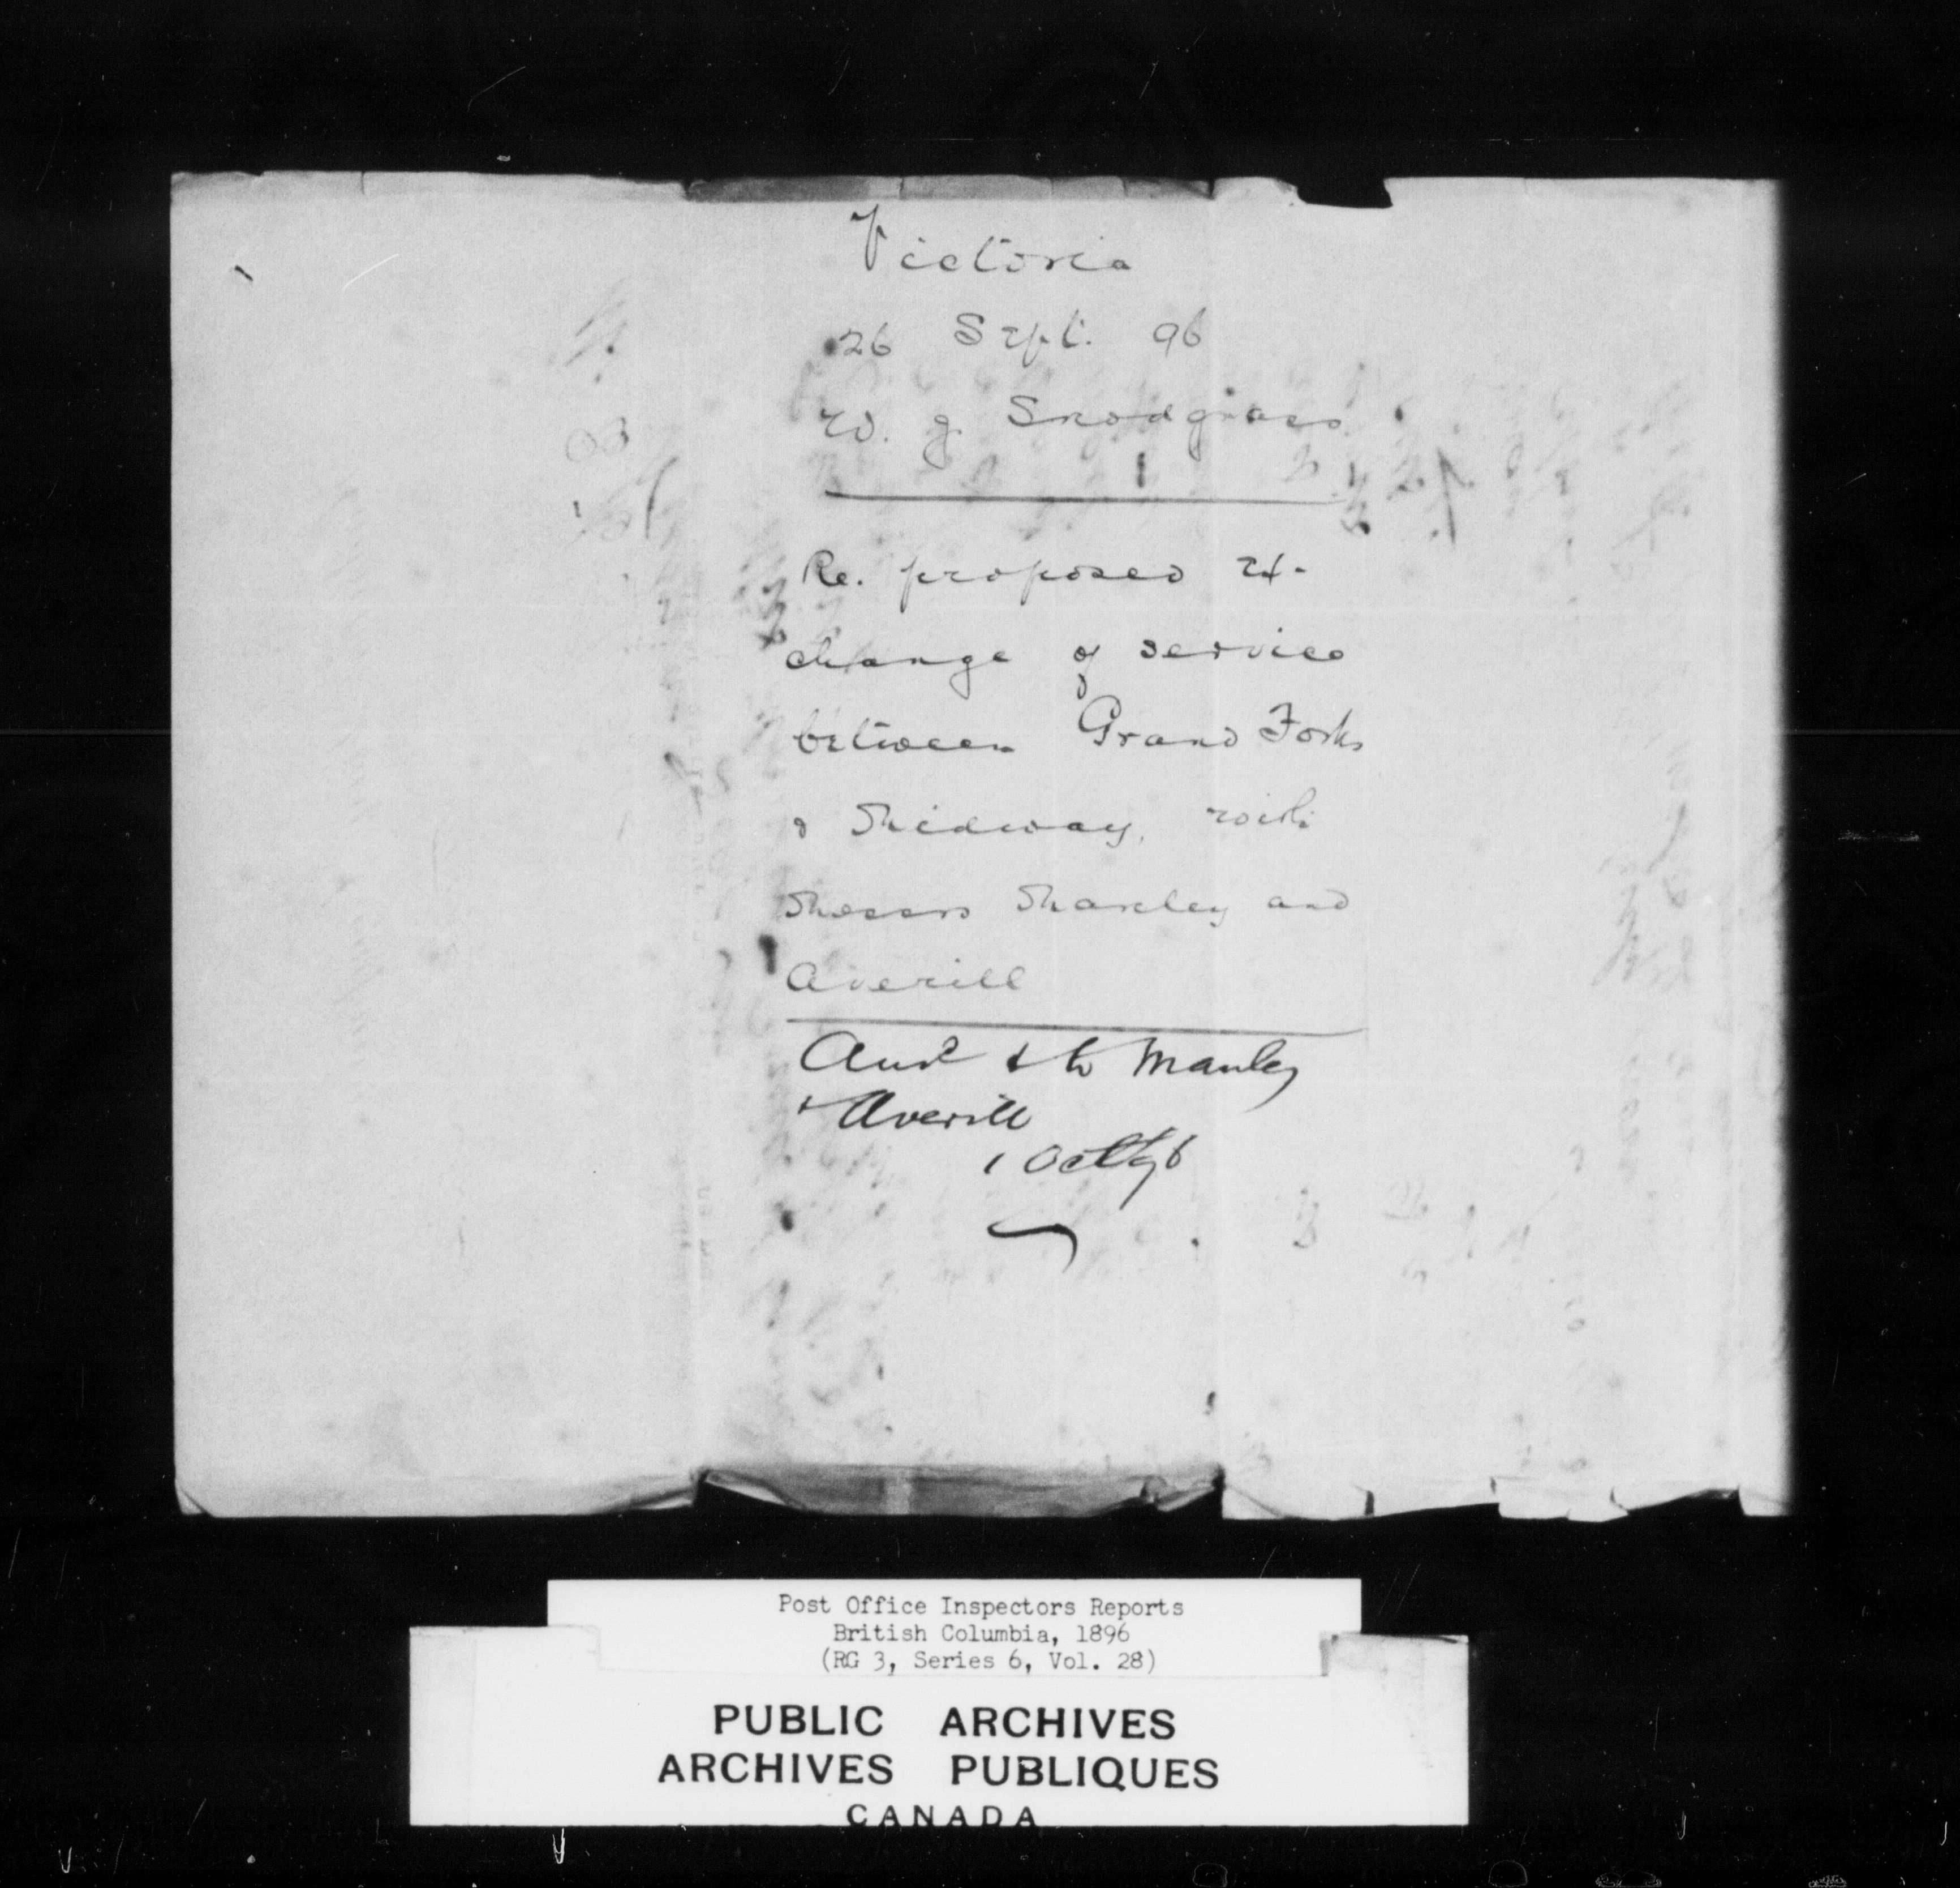 Victoria
26 Sept. 96
W. J. Snodgrass
Re. proposed ex-
change of service
between Grand Forks
& Midway, with
Messrs Manley and
Averill
Ansd & to Manley
& Averill
1 Oct 96
Post Office Inspectors Reports
British Columbia, 1896
(RG 3, Series 6, Vol. 28)
PUBLIC ARCHIVES
ARCHIVES PUBLIQUES
CANADA